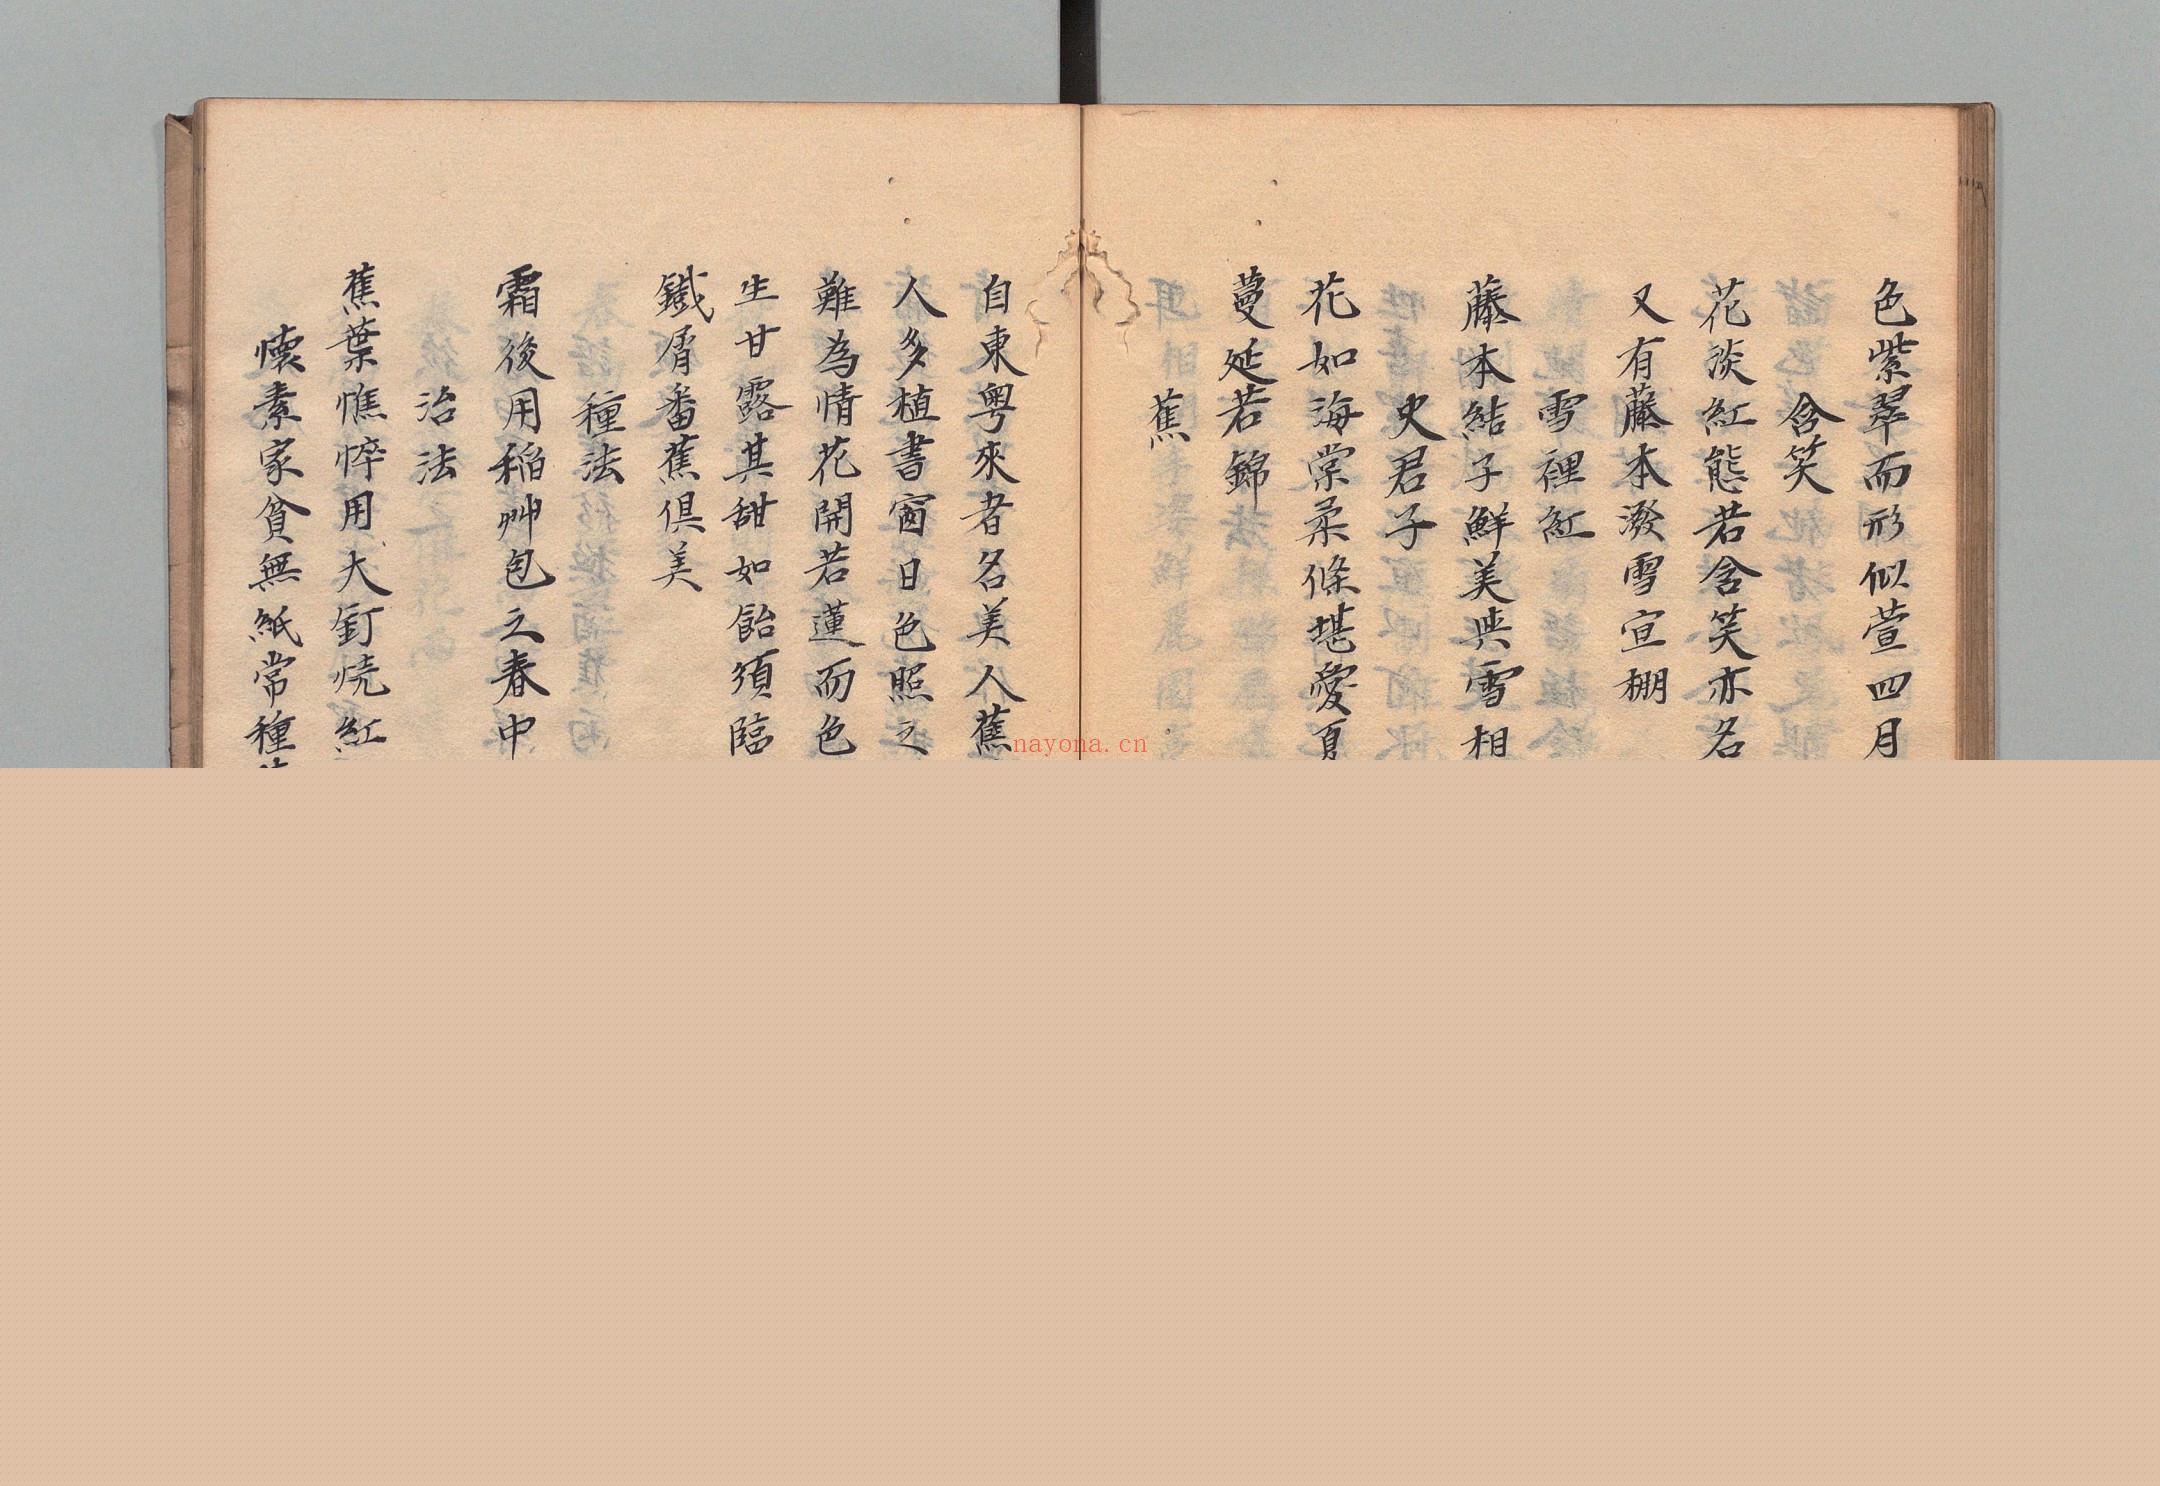 色紫翠而形似萱四月
含笑
花淡紅態若含笑亦名
又有藤本潑雪宣棚
雪裡紅
藤本結子鮮美與雪相
史君子
花如海棠柔條堪愛夏
蔓延若錦
蕉
自東粵來者名美人蕉
人多植書窗日色照之
難為情花開若蓮而色
生甘露其甜如飴須臨
鐵屑番蕉俱美
種法
霜後用稻艸包之春中
治法
蕉葉憔悴用大釘燒紅
懷素家貧無紙常種
nayona.cn